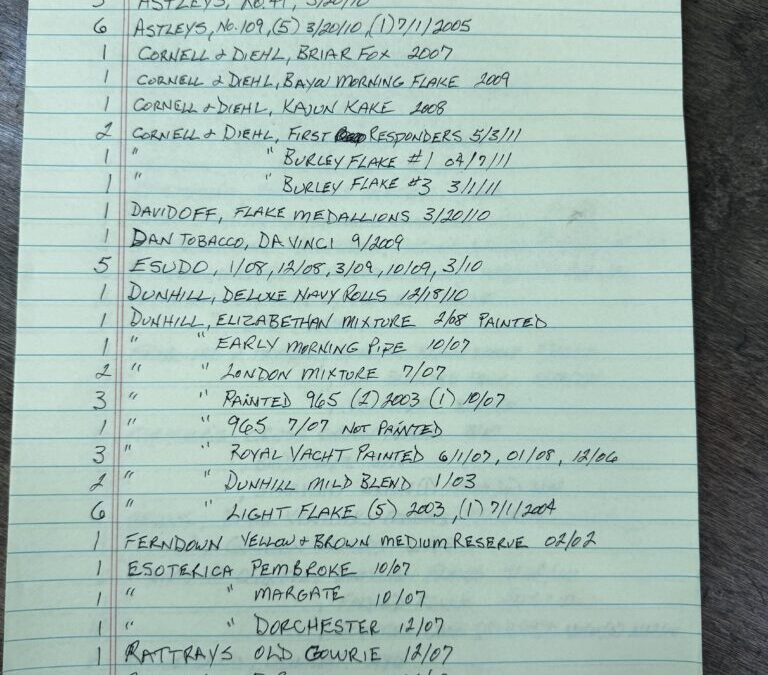 5 ASTLEYS, No. 44, 3/20/10
6 ASTLEYS, No. 109, (5) 3/20/10, (1) 7/1/2005
1 CORNELL & DIEHL, BRIAR FOX 2007
1 CORNELL & DIEHL, BAYOU MORNING FLAKE 2009
1 CORNELL & DIEHL, KAJUN KAKE 2008
2 CORNELL & DIEHL, FIRST RESPONDERS 5/3/11
1 " " BURLEY FLAKE #1 04/7/11
1 " " BURLEY FLAKE #3 3/1/11
1 DAVIDOFF, FLAKE MEDALLIONS 3/20/10
1 DAN TOBACCO, DA VINCI 9/2009
5 ESUDO, 1/08, 12/08, 3/09, 10/09, 3/10
1 DUNHILL, DELUXE NAVY ROLLS 12/18/10
1 DUNHILL, ELIZABETHAN MIXTURE 2/08 PAINTED
1 " " EARLY MORNING PIPE 10/07
2 " " LONDON MIXTURE 7/07
3 " " PAINTED 965 (2) 2003 (1) 10/07
1 " " 965 7/07 NOT PAINTED
3 " " ROYAL YACHT PAINTED 6/1/07, 01/08, 12/06
2 " " DUNHILL MILD BLEND 1/03
6 " " LIGHT FLAKE (5) 2003, (1) 7/1/2004
1 FERNDOWN YELLOW & BROWN MEDIUM RESERVE 02/02
1 ESOTERICA PEMBROKE 10/07
1 " " MARGATE 10/07
1 " " DORCHESTER 12/07
1 RATTRAYS OLD GOWRIE 12/07